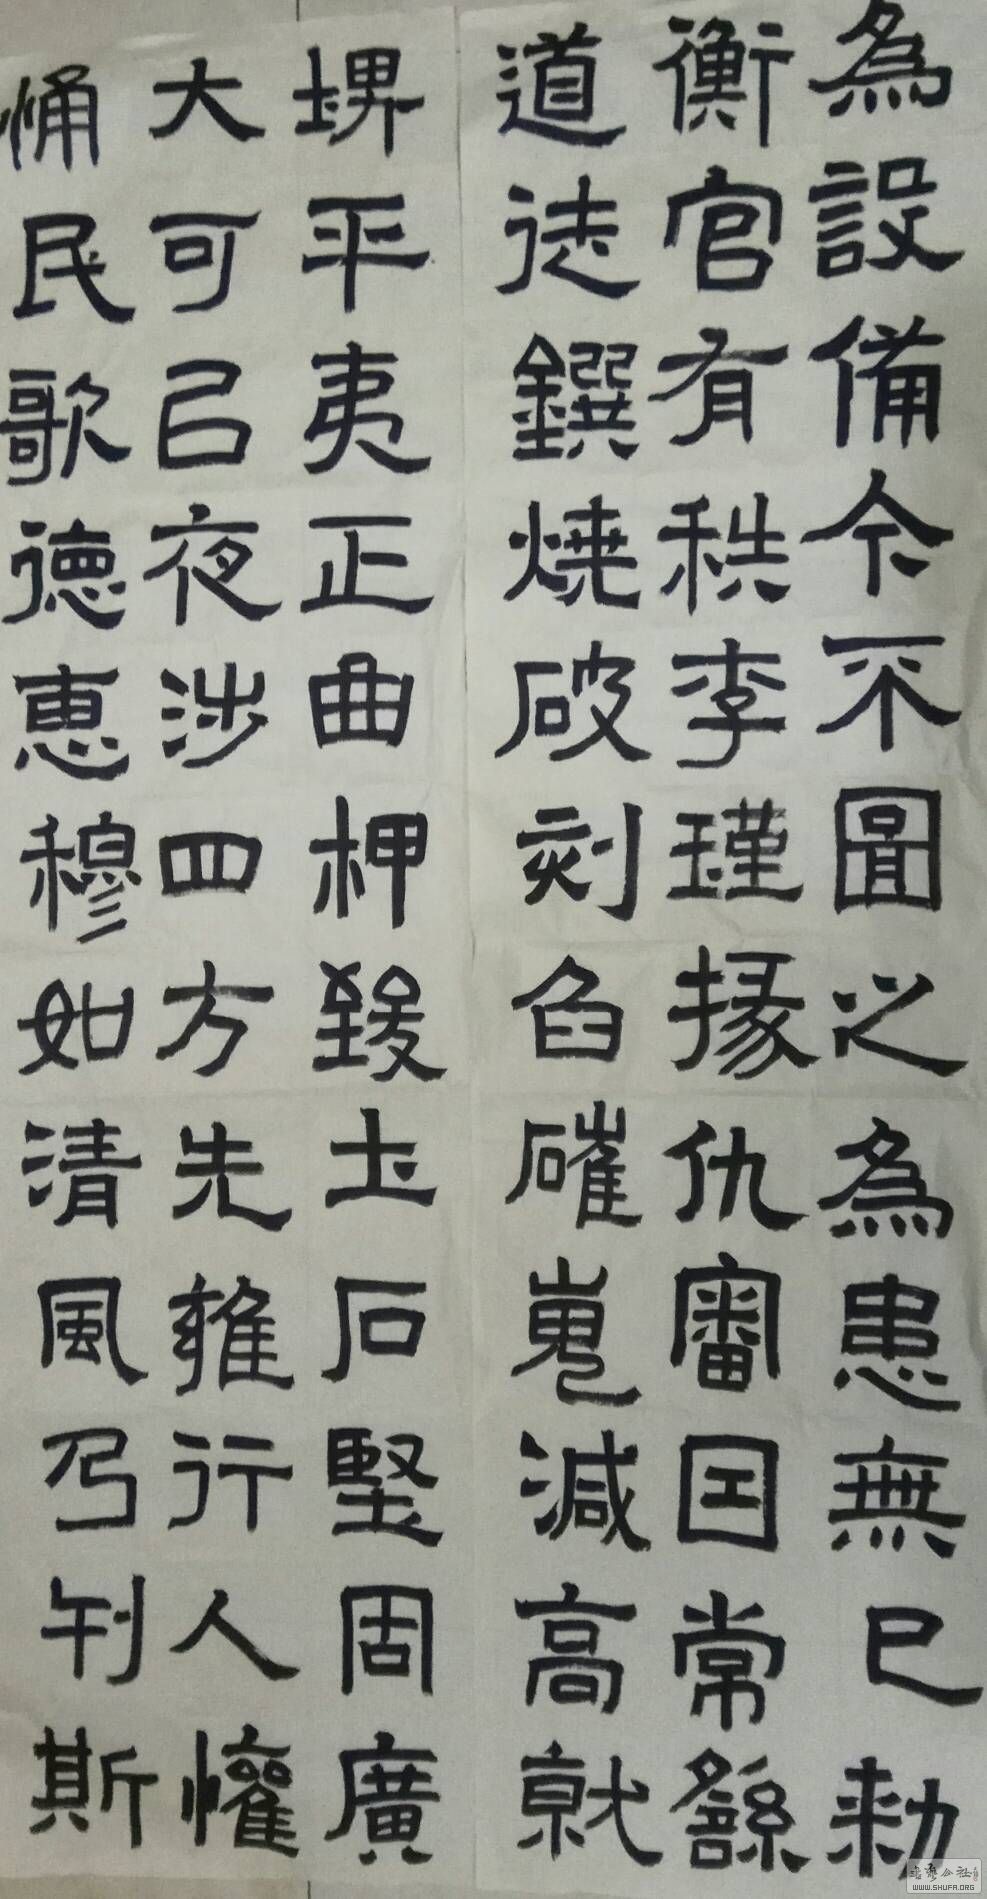 為設備今不圖之為患無已勑
衡官有秩李瑾掾仇審因常繇
道徒鐉燒破刻臽磪嵬減高就
埤平夷正曲柙致土石堅固廣
大可已夜涉四方先雍行人懽
悀民歌德惠穆如清風乃刊斯
WWW.SHUFA.ORG